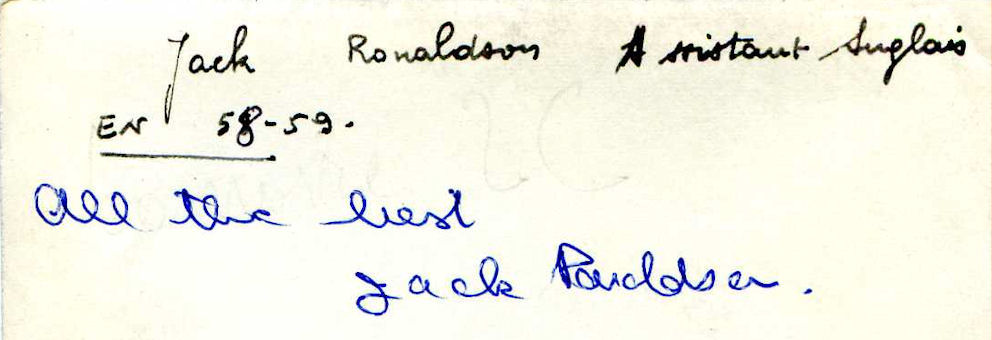 Jack Ronaldson Assistant Anglais
EN 58-59.
All the best
Jack Ronaldson.